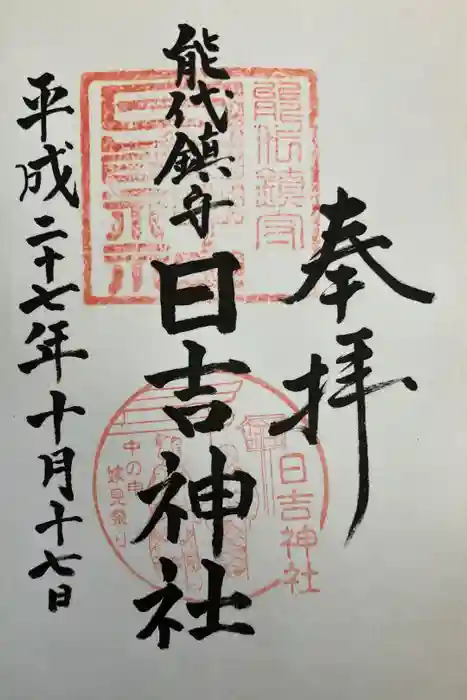 奉拝
能代鎮守
日吉神社
平成二十七年十月十七日
能代鎮守
日吉神社
中の申
嫁見祭り